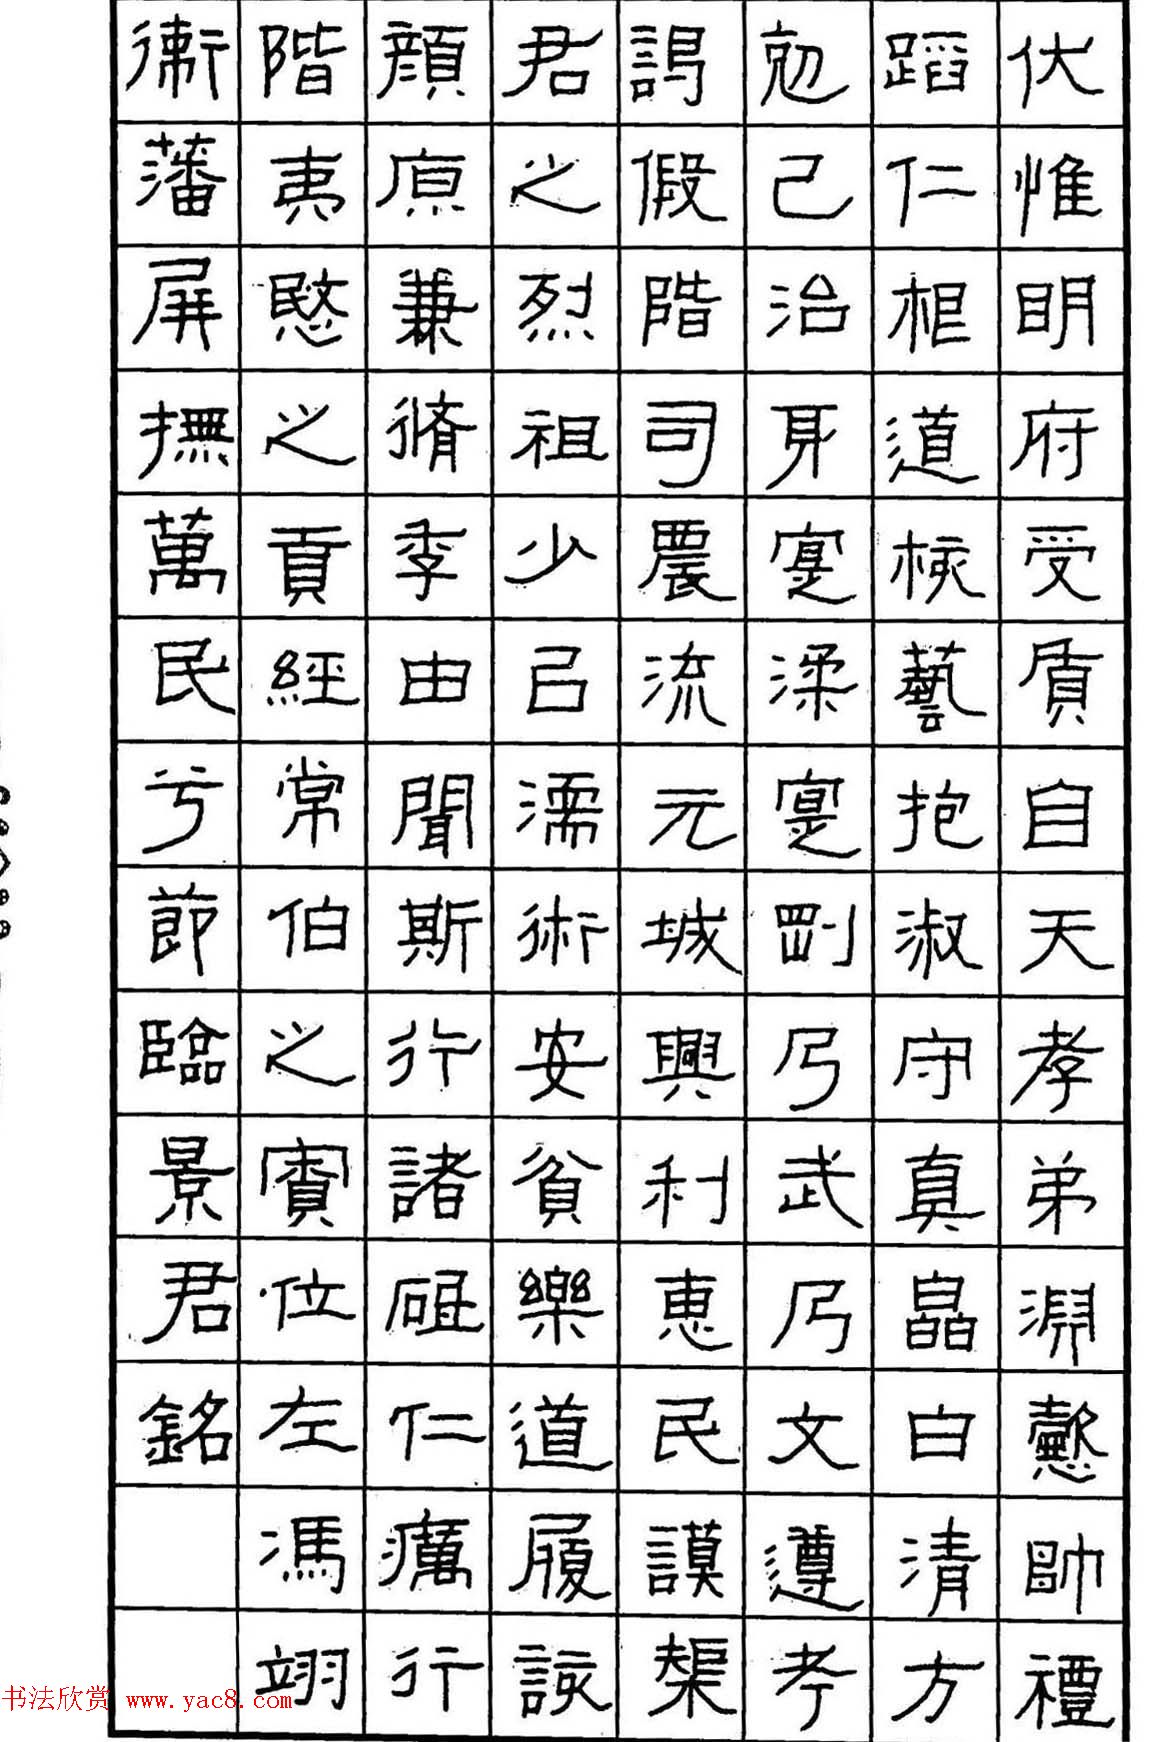 伏惟明府受質自天孝弟淵懿帥禮
蹈仁根道核藝抱淑守真皛白清方
剋己治身寔柔寔剛乃武乃文遵孝
謁假階司農流元城興利惠民謨榘
君之烈祖少呂濡術安貧樂道履該
顏原兼脩季由聞斯行諸砥仁癘行
階夷愍之貢經常伯之賓位左馮翊
衛藩屏撫萬民兮節臨景君銘
书法欣赏 www.yac8.com